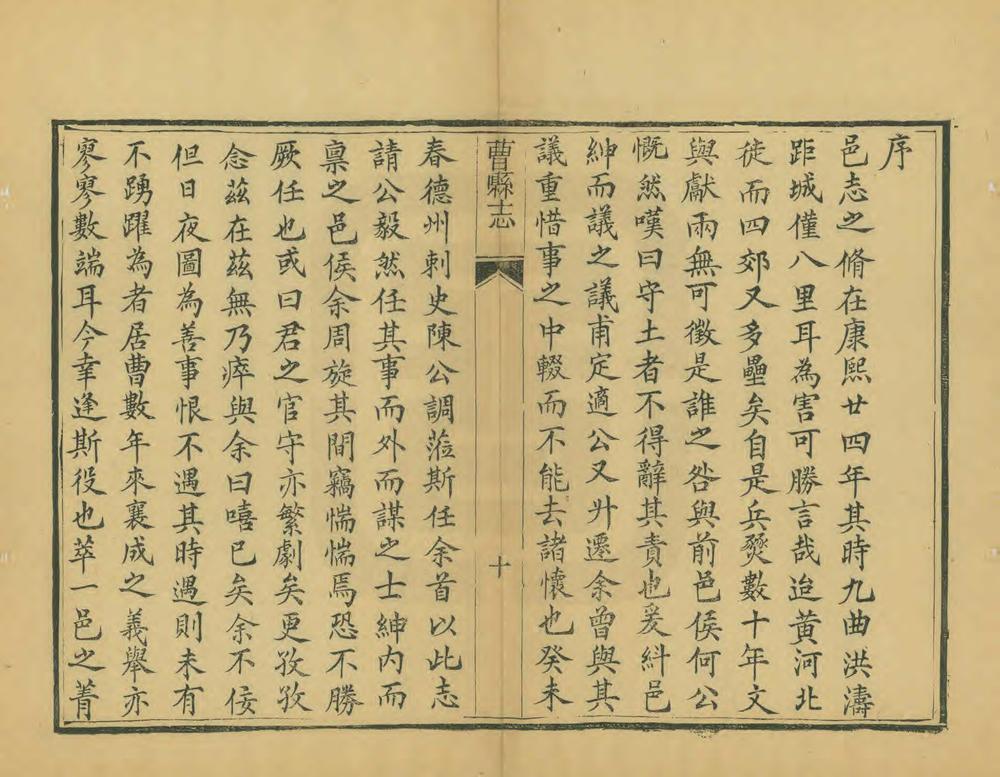 序
邑志之脩在康熙廿四年其時九曲洪濤
距城僅八里耳為害可勝言哉迨黃河北
徙而四郊又多壘矣自是兵燹數十年文
與獻兩無可徵是誰之咎與前邑侯何公
慨然嘆曰守土者不得辭其責也爰糾邑
紳而議之議甫定適公又升遷余曾與其
議重惜事之中輟而不能去諸懷也癸未
曹縣志
十
春德州刺史陳公調蒞斯任余首以此志
請公毅然任其事而外而謀之士紳内而
稟之邑侯余周旋其間竊惴惴焉恐不勝
厥任也或曰君之官守亦繁劇矣更孜孜
念茲在茲無乃瘁與余曰嘻已矣余不佞
但日夜圖為善事恨不遇其時遇則未有
不踴躍為者居曹數年來襄成之義舉亦
寥寥數端耳今幸逢斯役也萃一邑之菁